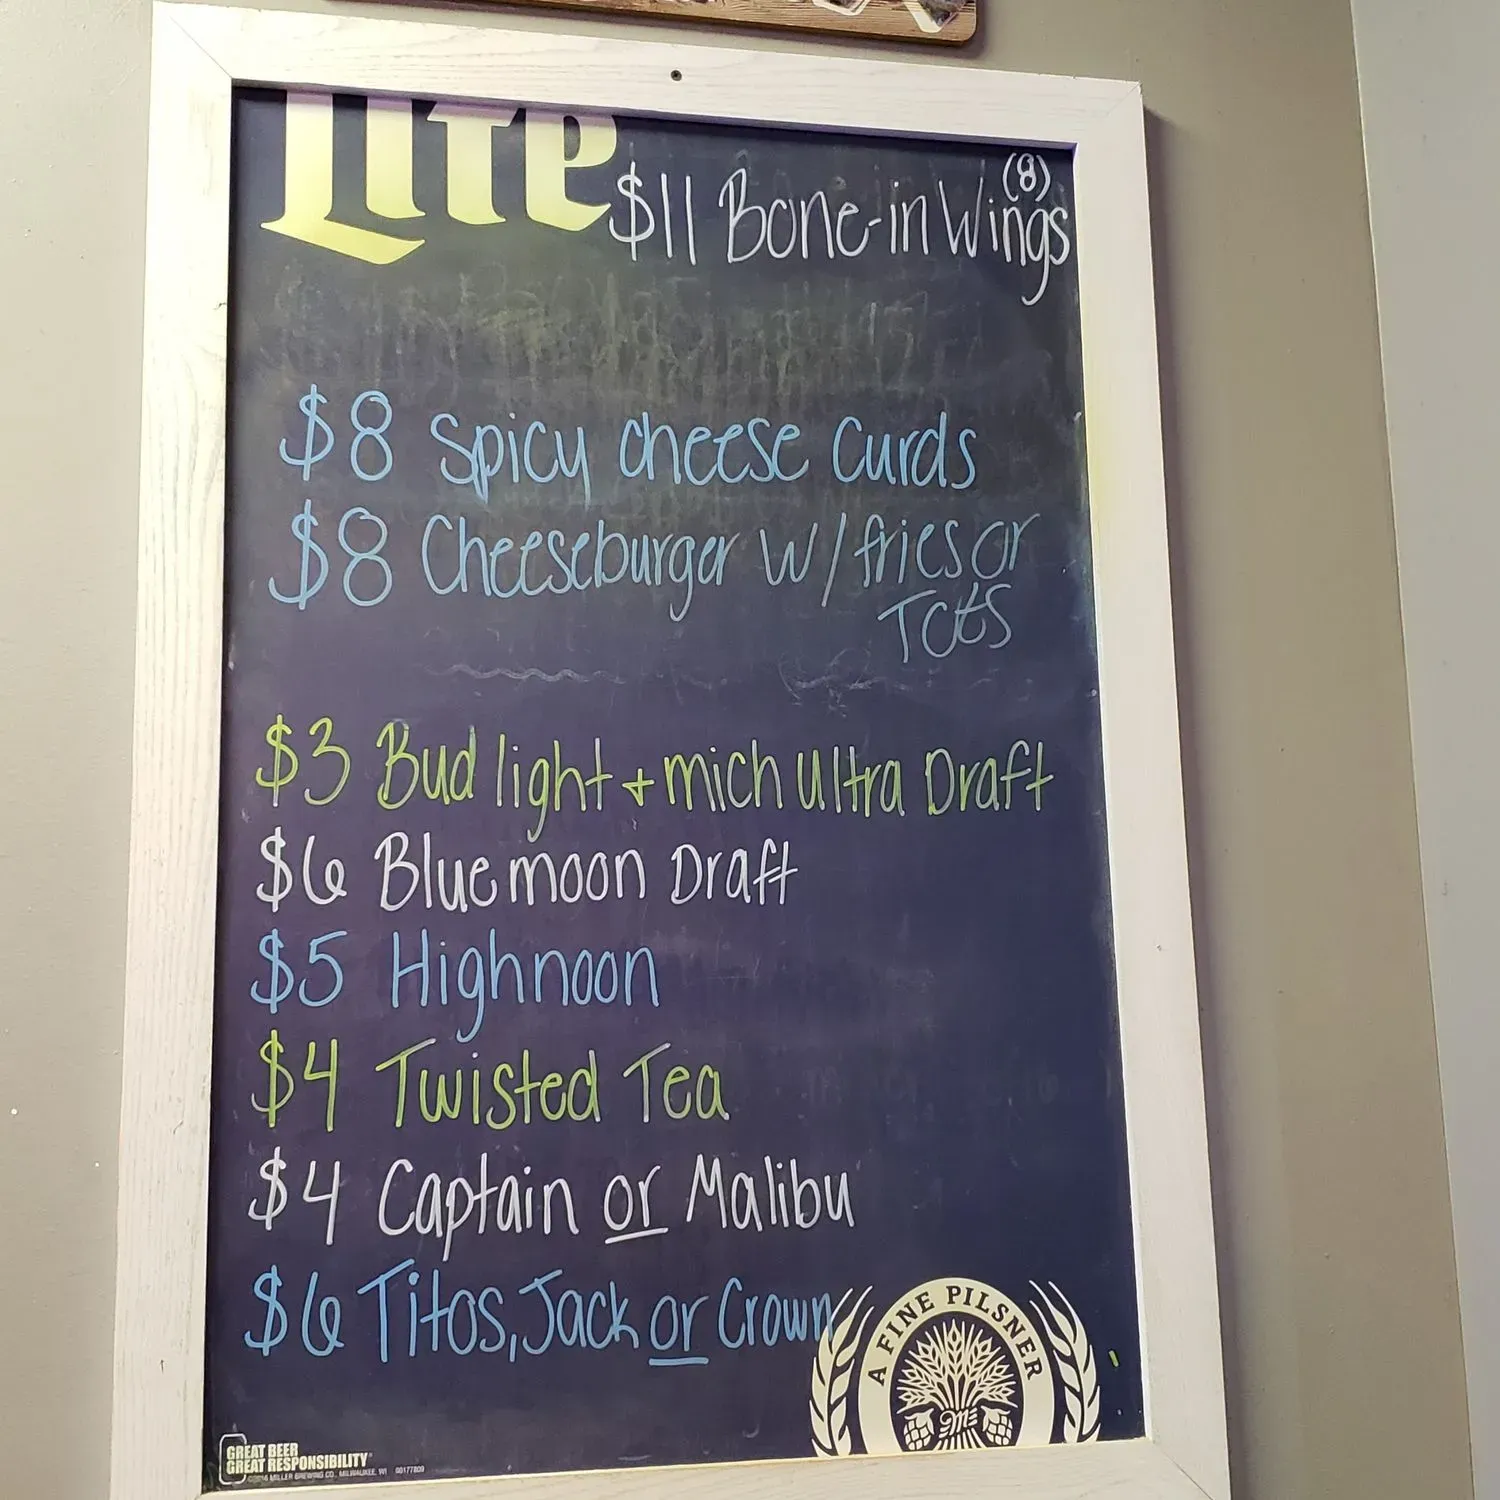 Lite
(8)
$11 Bone-in Wings
$8 Spicy cheese curds
$8 Cheeseburger w/fries or
Tots
$3 Bud light + mich ultra Draft
$6 Blue moon Draft
$5 Highnoon
$4 Twisted Tea
$4 Captain or Malibu
$6 Titos, Jack or Crown
A FINE PILSNER
GREAT BEER
GREAT RESPONSIBILITY
©2016 MILLER BREWING CO., MILWAUKEE, WI 00177809